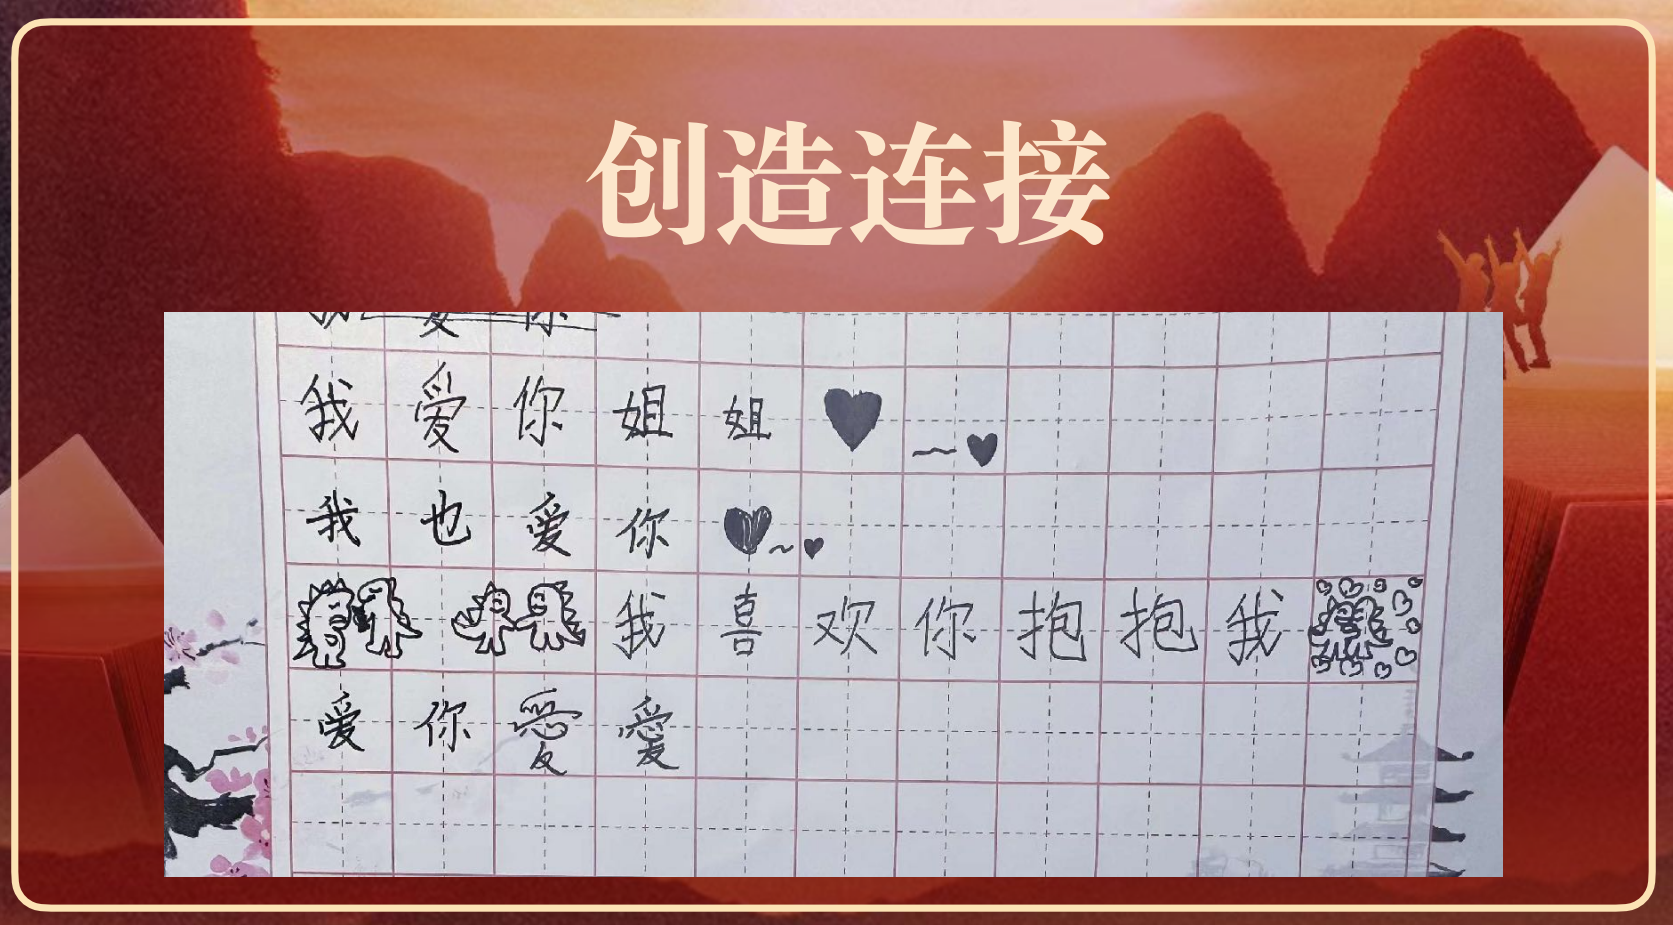 创造连接
我爱你
我爱你姐姐
我也爱你
我喜欢你抱抱我
爱你愛愛